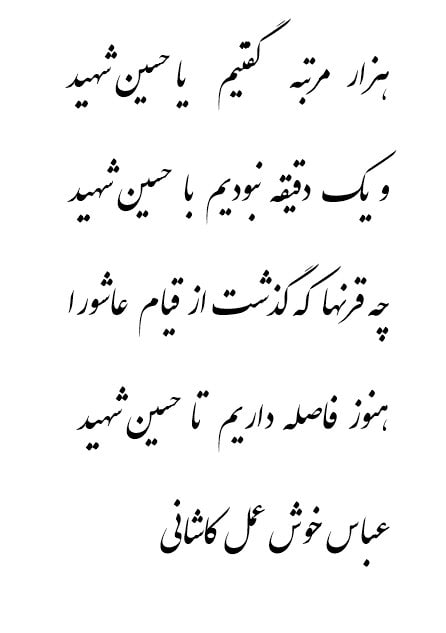 هزار مرتبه گفتیم یا حسین شهید
و یک دقیقه نبودیم با حسین شهید
چه قرنها که گذشت از قیام عاشورا
هنوز فاصله داریم تا حسین شهید
عباس خوش عمل کاشانی